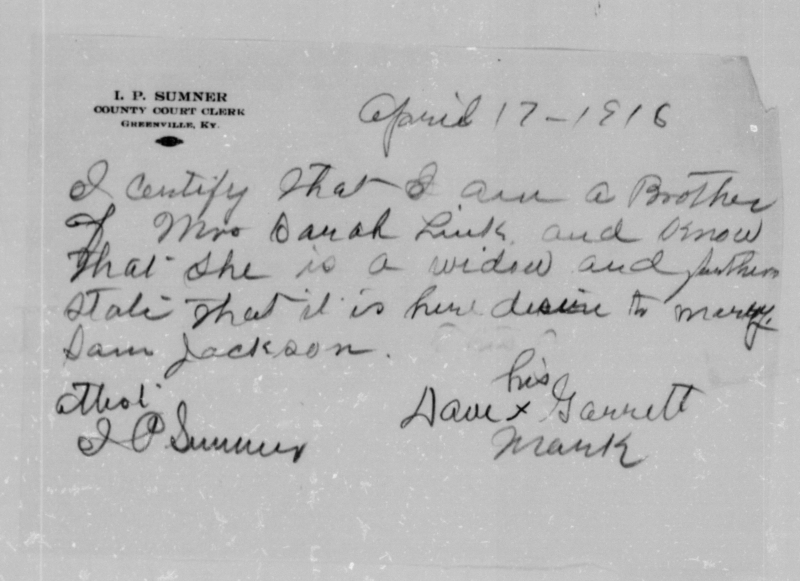 I. P. SUMNER
COUNTY COURT CLERK
GREENVILLE, KY.
April 17-1916
I certify that I am a Brother
of Mrs Sarah Link and know
that she is a widow and further
state that it is here desire to marry
Sam Jackson.
attest
I P Sumner
his
Dave x Garrett
Mark